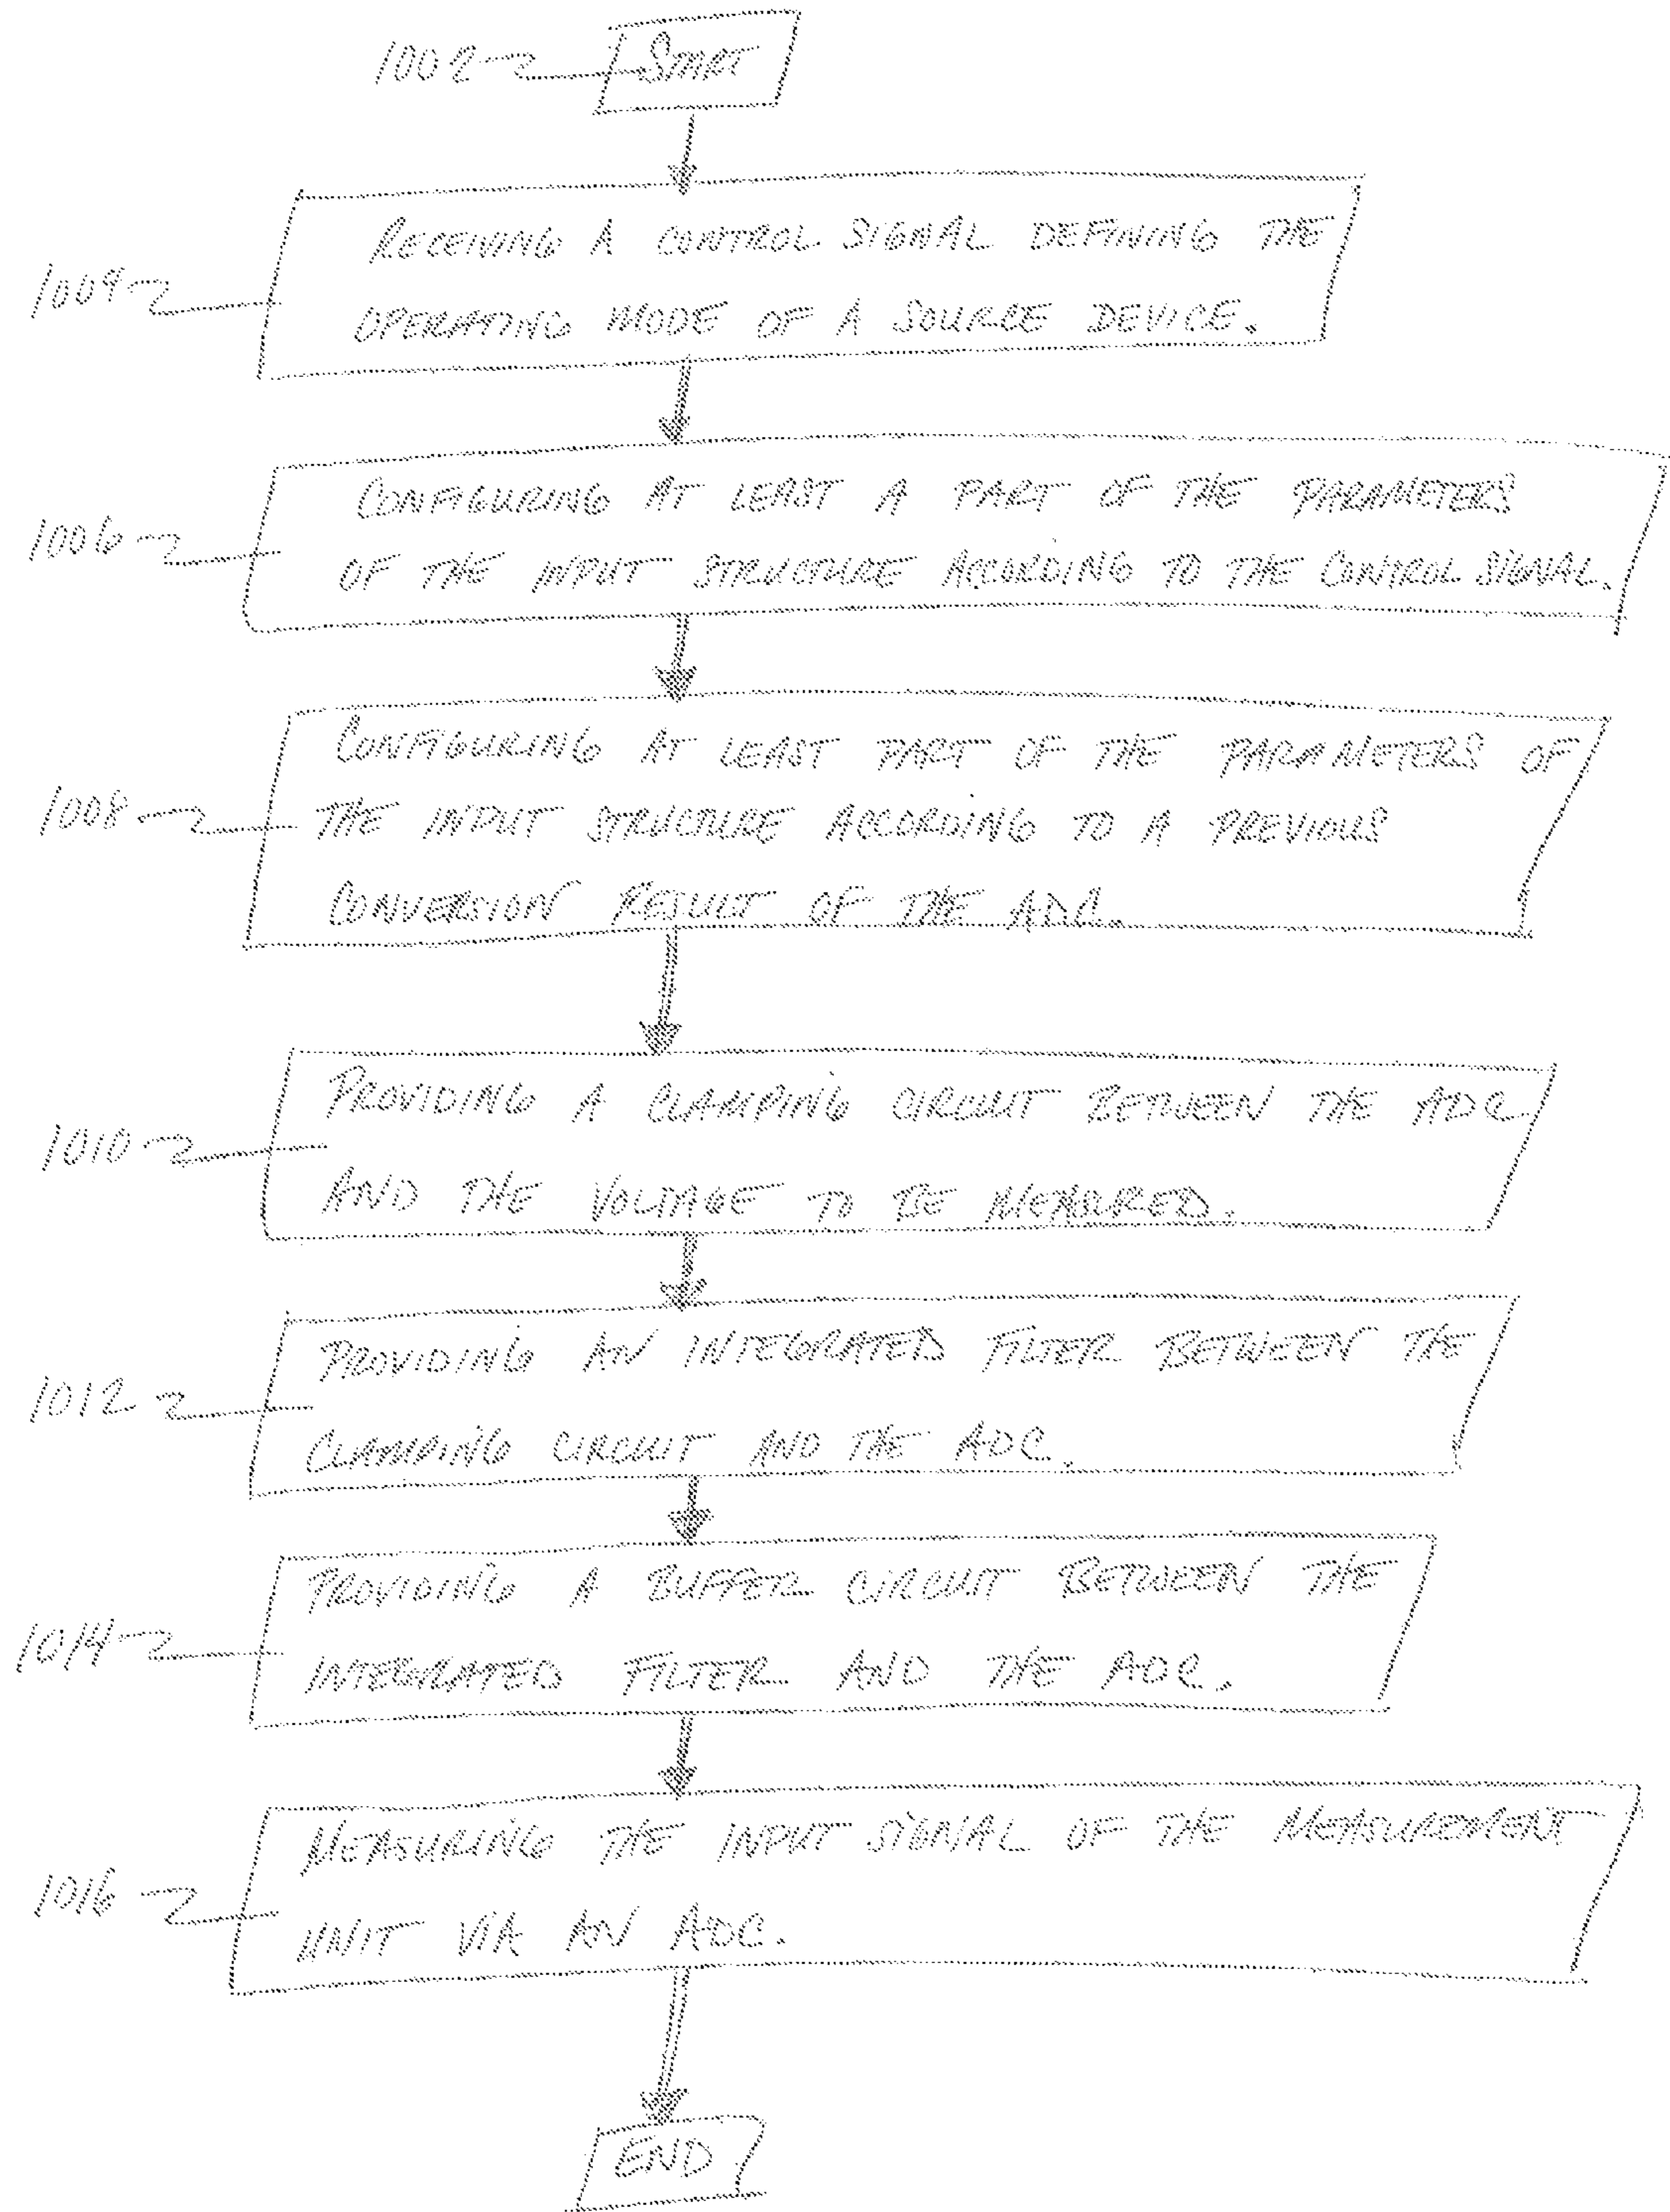 1002 START
RECEIVING A CONTROL SIGNAL DEFINING THE
1004
OPERATING MODE OF A SOURCE DEVICE.
CONFIGURING AT LEAST A PART OF THE PARAMETERS
1006
OF THE INPUT STRUCTURE ACCORDING TO THE CONTROL SIGNAL.
CONFIGURING AT LEAST PART OF THE PARAMETERS OF
1008
THE INPUT STRUCTURE ACCORDING TO A PREVIOUS
CONVERSION RESULT OF THE ADC.
PROVIDING A CLAMPING CIRCUIT BETWEEN THE ADC
1010
AND THE VOLTAGE TO BE MEASURED.
PROVIDING AN INTEGRATED FILTER BETWEEN THE
1012
CLAMPING CIRCUIT AND THE ADC.
PROVIDING A BUFFER CIRCUIT BETWEEN THE
1014
INTEGRATED FILTER AND THE ADC.
MEASURING THE INPUT SIGNAL OF THE MEASUREMENT
1016
UNIT VIA AN ADC.
END